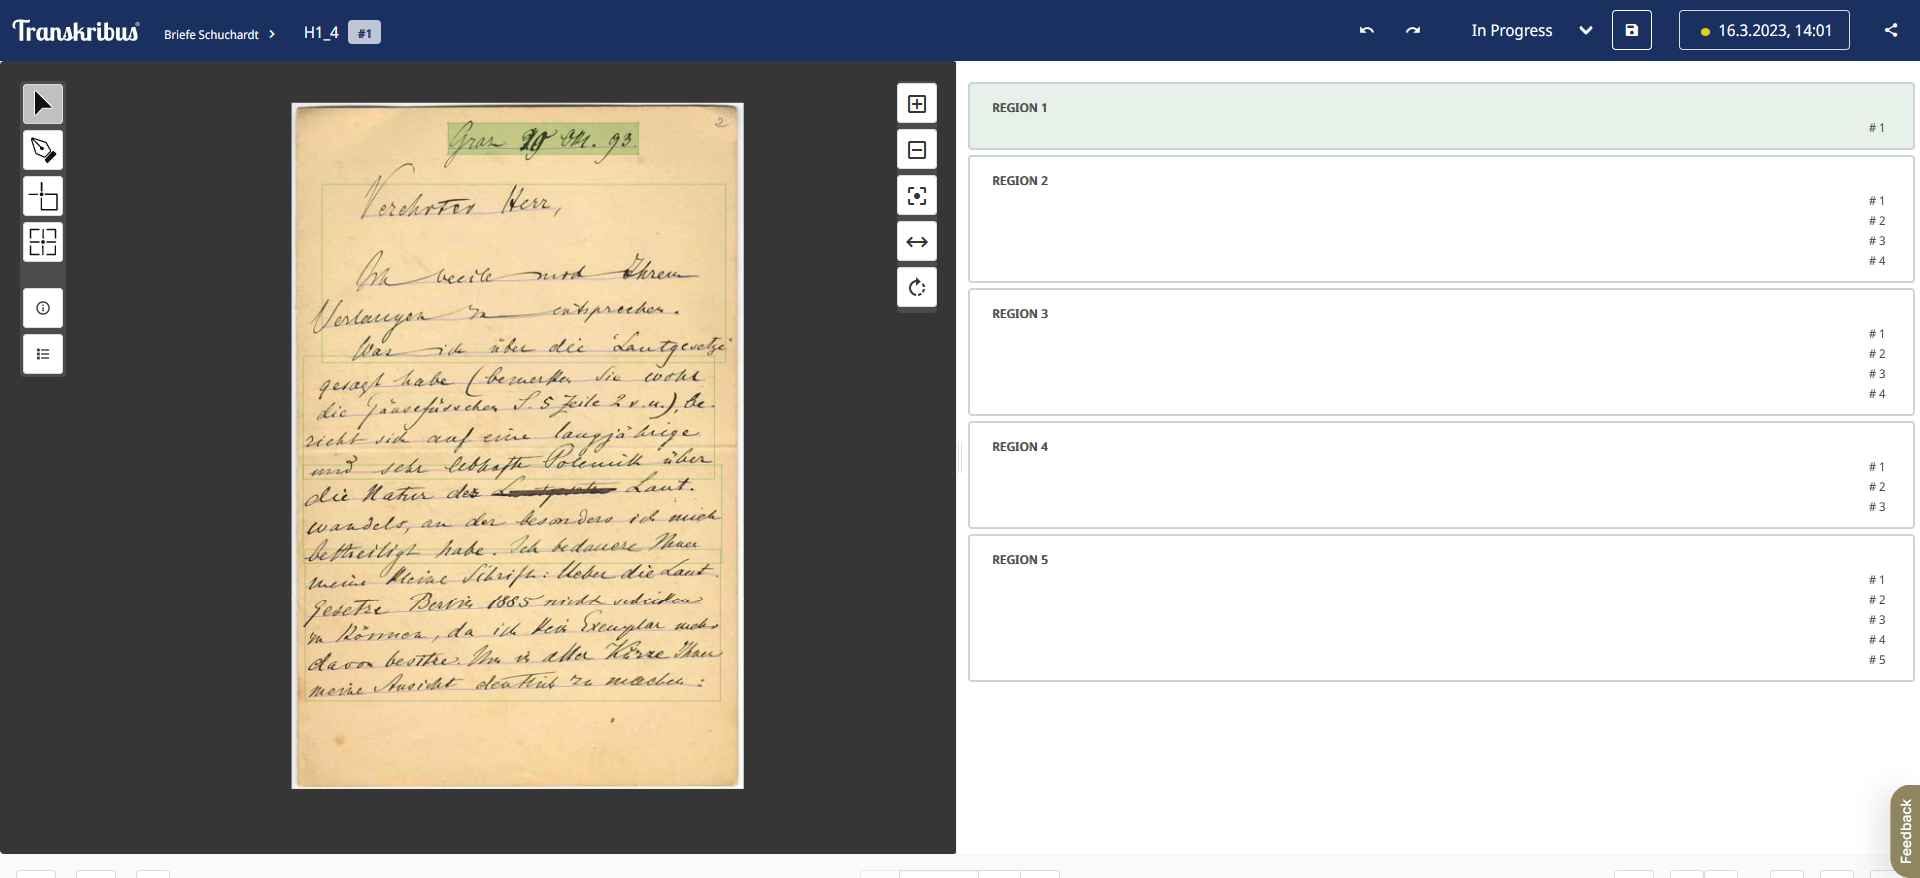 Transkribus
Briefe Schuchardt
H1_4
#1
In Progress
16.3.2023, 14:01
2
Graz 29 Okt. 93.
Verehrter Herr,
Ich beeile mich Ihrem
Verlangen zu entsprechen.
Was ich über die 'Lautgesetze'
gesagt habe (bemerken Sie wohl
die Gänsefüsschen S. 5 Zeile 2 v. u.), be-
zieht sich auf eine langjährige
und sehr lebhafte Polemik über
die Natur des Laut-
wandels, an der besonders ich mich
betheiligt habe. Ich bedauere Ihnen
meine kleine Schrift: Ueber die Laut-
gesetze Berlin 1885 nicht schicken
zu können, da ich kein Exemplar mehr
davon besitze. Um in aller Kürze Ihnen
meine Ansicht deutlich zu machen:
REGION 1
#1
REGION 2
#1
#2
#3
#4
REGION 3
#1
#2
#3
#4
REGION 4
#1
#2
#3
REGION 5
#1
#2
#3
#4
#5
Feedback